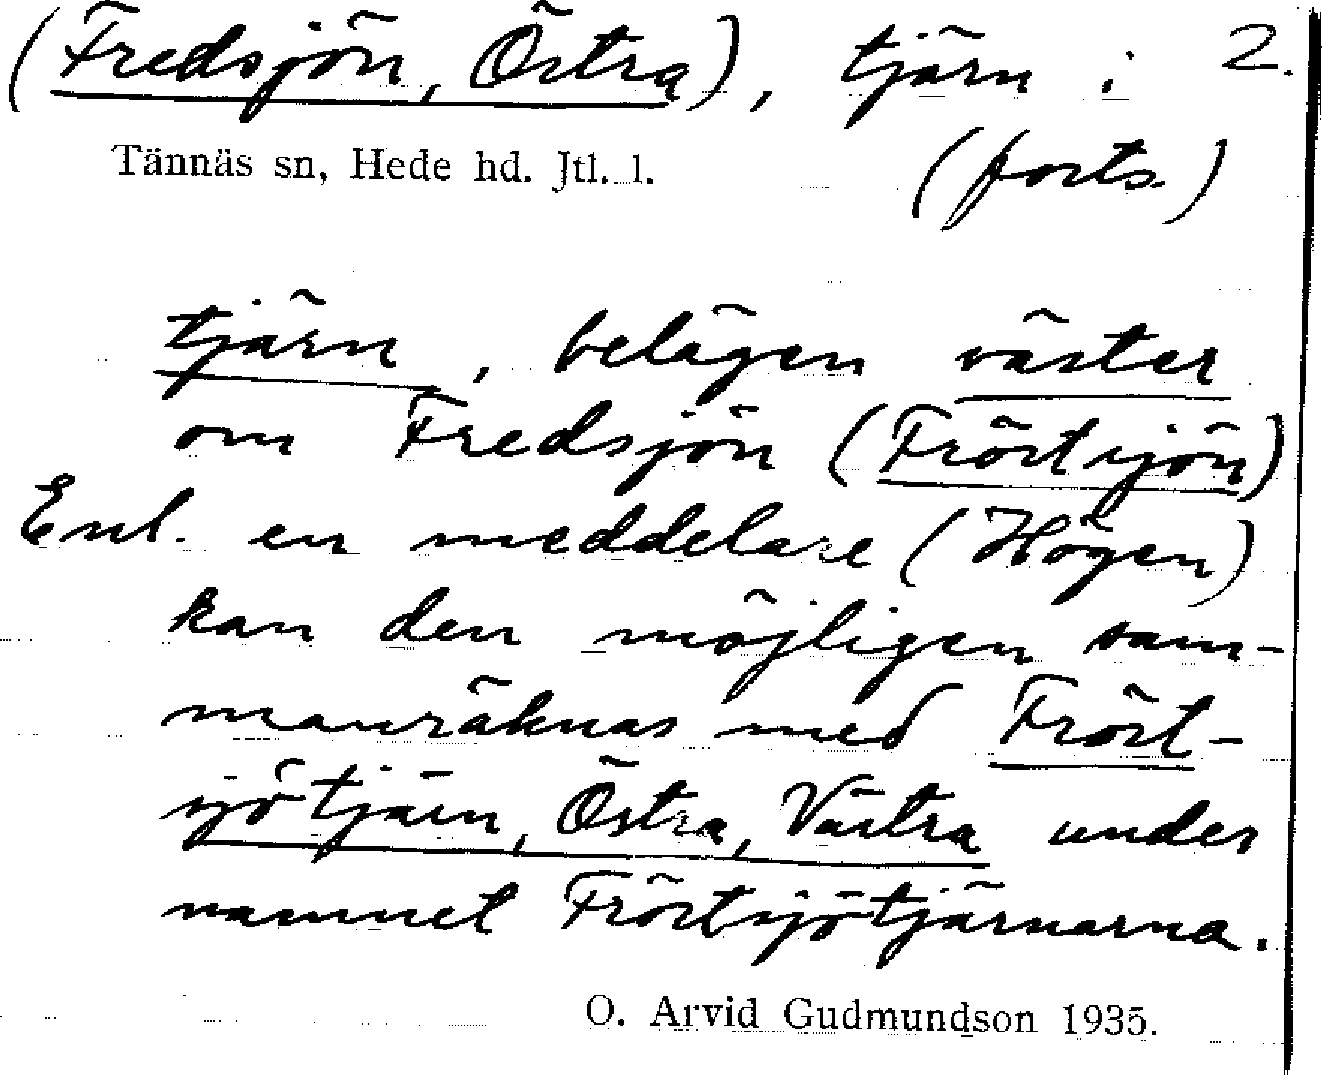 (Fredsjön, Östra), tjärn i 2.
Tännäs sn, Hede hd. Jtl. l. (forts.)
tjärn, belägen väster
om Fredsjön (Fröstsjön)
Enl. en meddelare (Högen)
kan den möjligen sam-
manräknas med Fröst-
sjötjärn, Östra, Västra under
namnet Fröstsjötjärnarna.
O. Arvid Gudmundson 1935.